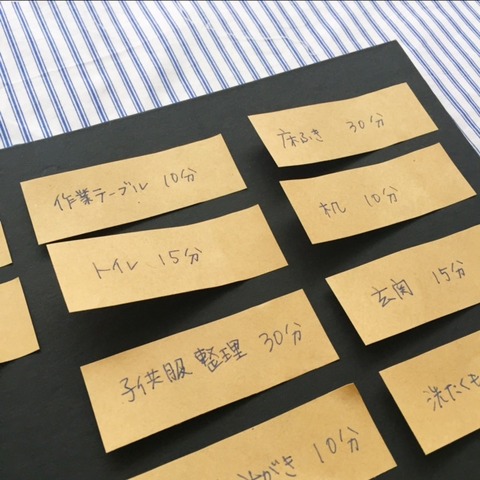 作業テーブル 10分
トイレ 15分
子供服 整理 30分
10分
床ふき 30分
机 10分
玄関 15分
洗たく